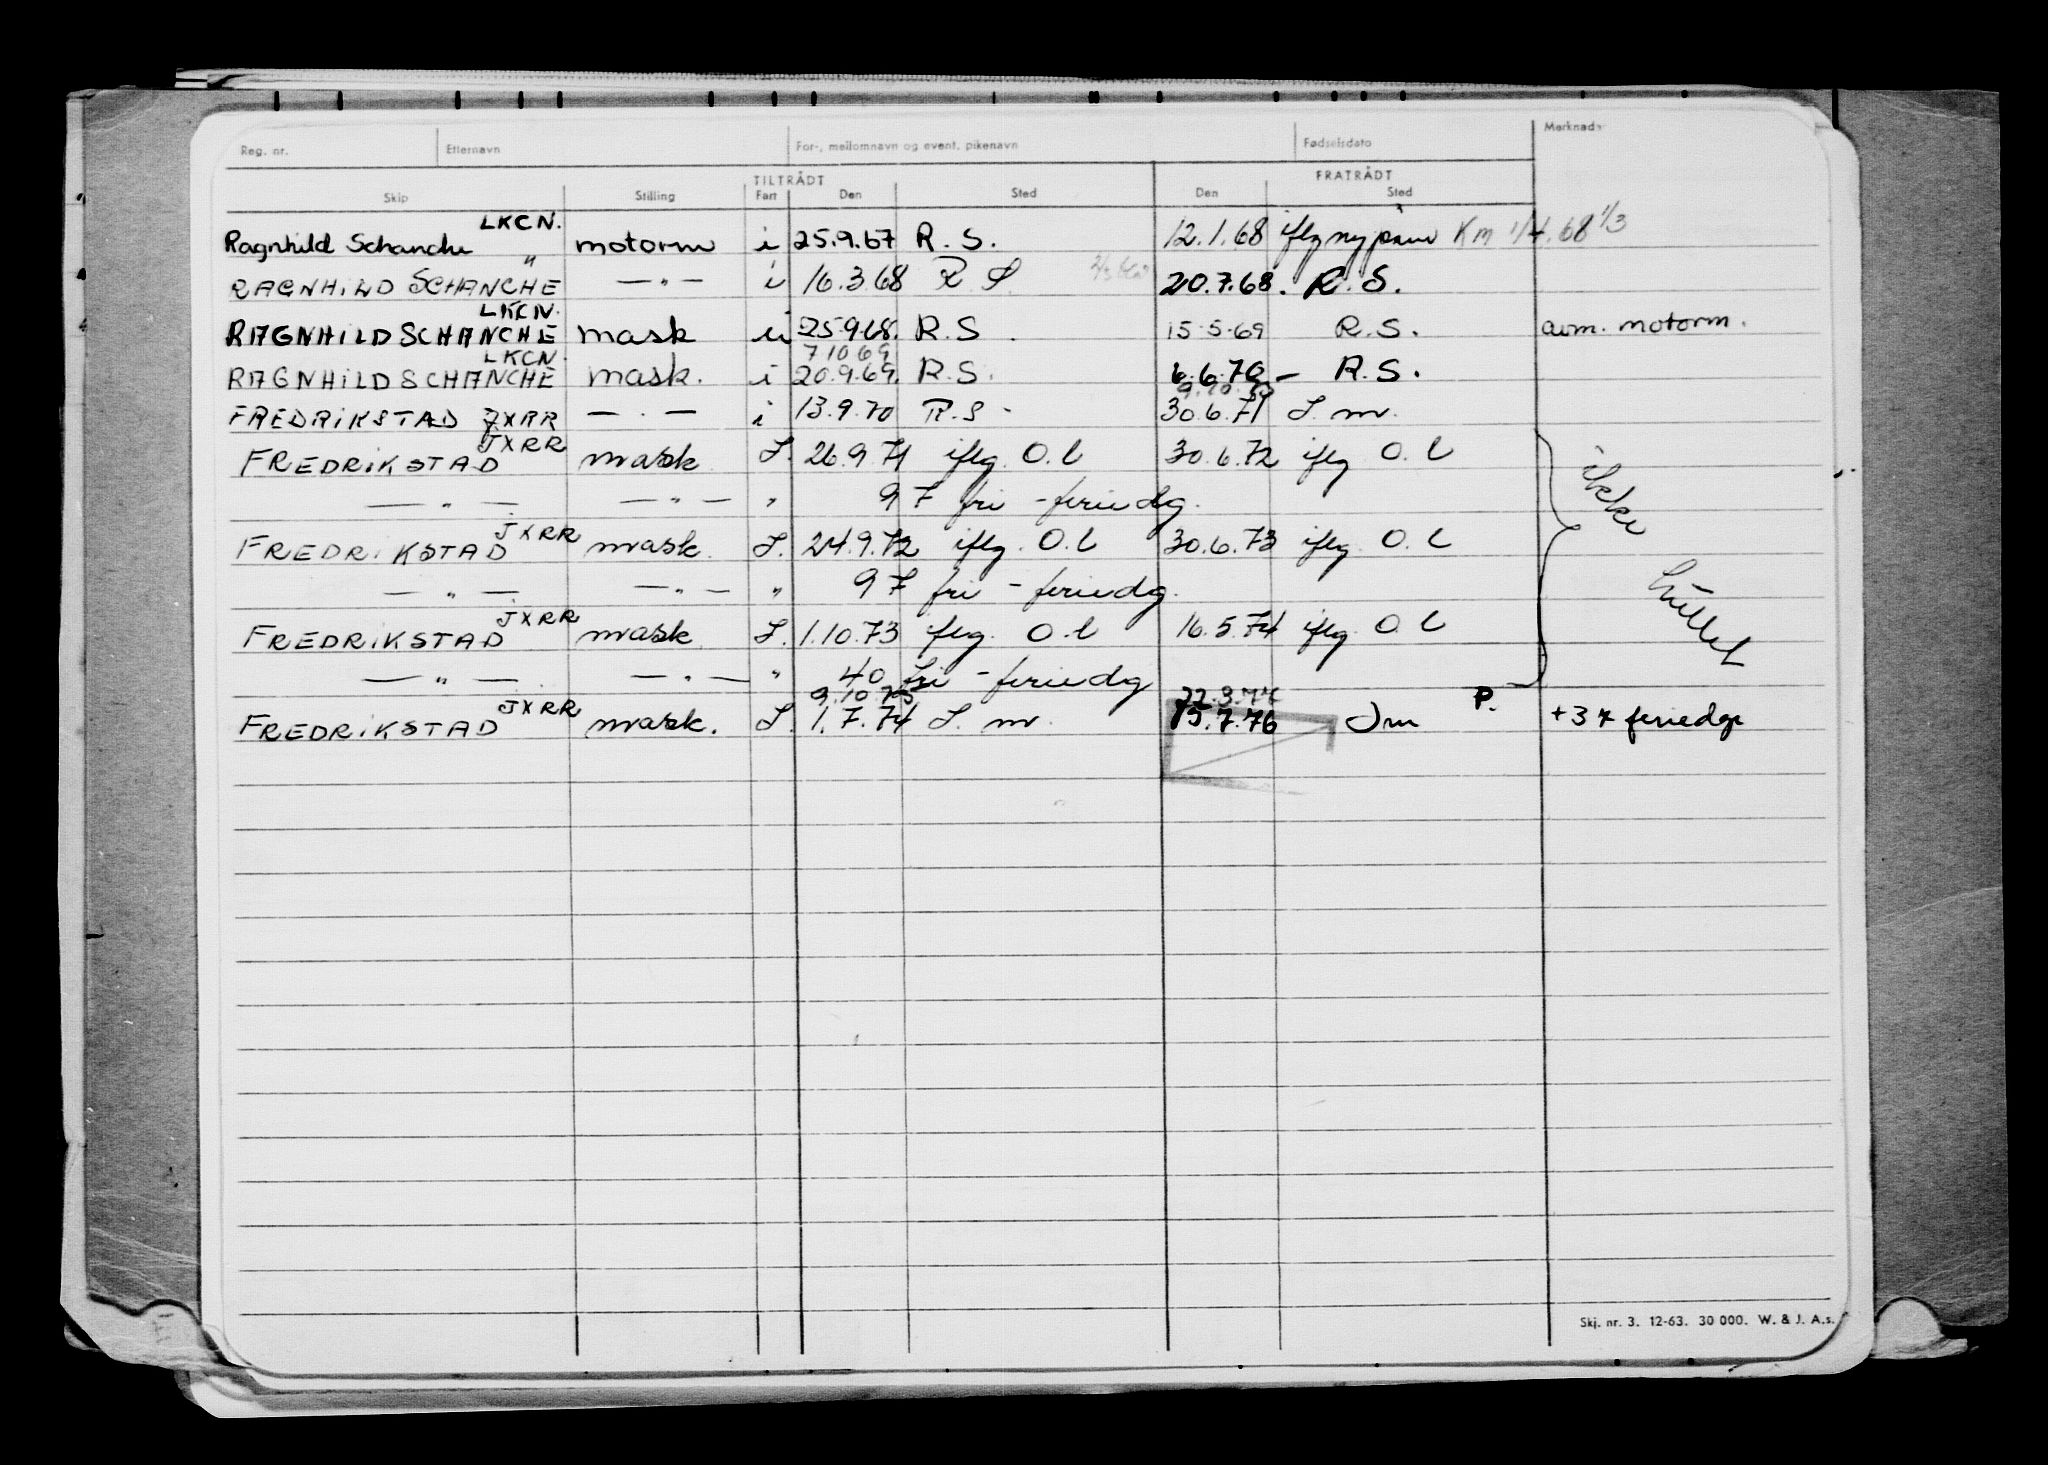 Reg. nr. Etternavn For-, mellomnavn og event. pikenavn Fødselsdato Merknader
TILTRÅDT FRATRÅDT
Skip Stilling Fart Den Sted Den Sted
LKCN.
Ragnhild Schanche motorm i 25.9.67 R. S. 12.1.68 iflg ny pam Km 1/4.68 1/3
"
RAGNHILD SCHANCHE — " — i 16.3.68 R S 20.7.68. R.S.
LKCN.
RAGNHILD SCHANCHE mask ii 25.9.68. R.S. 15-5-69 R.S. avm. motorm.
LKCN. 7 10 69
RAGNHILD SCHANCHE mask. i 20.9.69. R.S. 6.6.70 — R.S.
FREDRIKSTAD JXRR — . — i 13.9.70 R.S - 30.6.71 S. m.
JXRR
FREDRIKSTAD mask S. 26.9.71 iflg. O.l 30.6.72 iflg O.l
— " — — " — " 97 fri - feriedg.
JXRR
FREDRIKSTAD mask. S. 24.9.72 iflg. O.l 30.6.73 iflg. O.l
— " — — " — " 97 fri - feriedg.
JXRR
FREDRIKSTAD mask S. 1.10.73 iflg. O.l 16.5.74 iflg. O.l
ikke hullet
— " — — " — " 40 fri - feriedg
JXRR 9.10.75 P.
FREDRIKSTAD mask. S. 1.7.74 S. m. 15.7.76 Sm +34 feriedgr
Skj. nr. 3. 12-63. 30 000. W. & J. A.s.